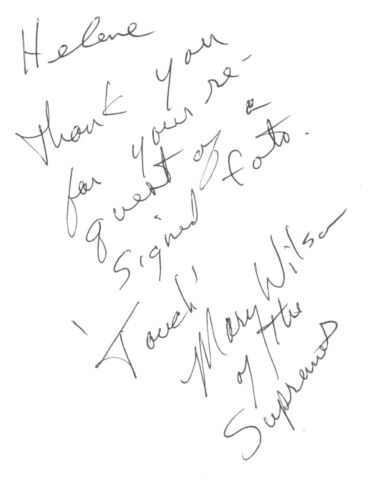 Helene
Thank you
for your re-
quest of a
signed foto.
'Touch'
Mary Wilson
of the
Supremes